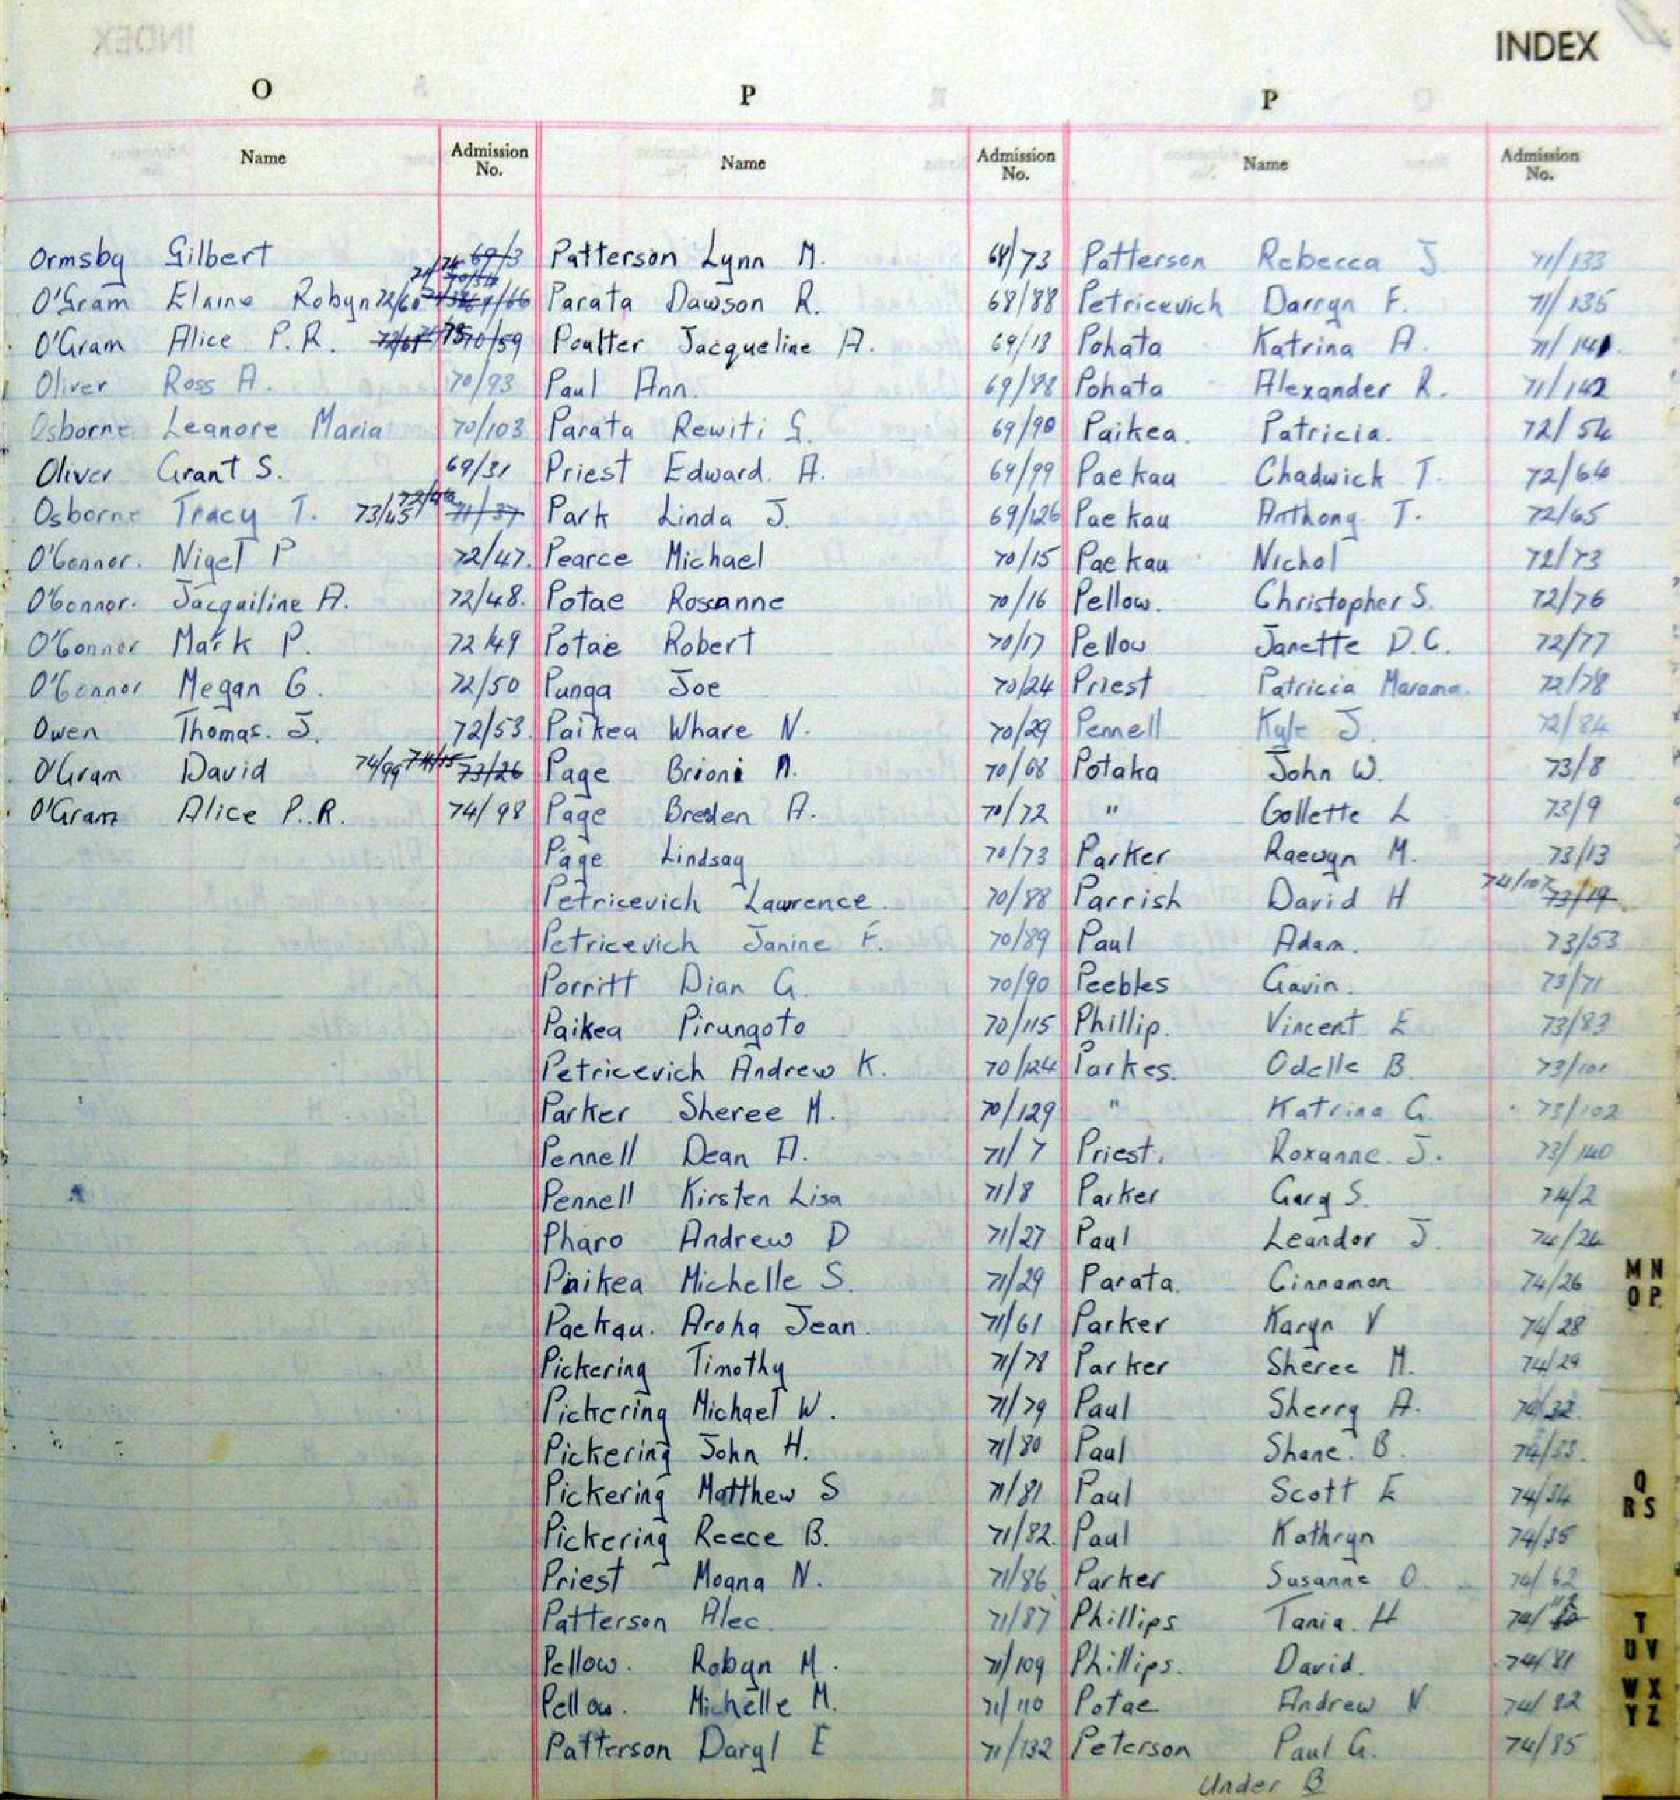 INDEX
O
Name
Admission No.
Ormsby Gilbert 69/3
O'Gram Elaine Robyn 72/60 69/66
O'Gram Alice P.R. 70/59
Oliver Ross A. 70/93
Osborne Leanore Maria 70/103
Oliver Grant S. 69/31
Osborne Tracy T. 73/45 72/96 71/37
O'Connor. Nigel P 72/47.
O'Connor. Jacquiline A. 72/48.
O'Connor Mark P. 72/49
O'Connor Megan G. 72/50
Owen Thomas. J. 72/53.
O'Gram David 74/99 74/15 73/26
O'Gram Alice P.R. 74/98
P
Name
Admission No.
Patterson Lynn M. 68/73
Parata Dawson R. 68/88
Poulter Jacqueline A. 69/13
Paul Ann. 69/88
Parata Rewiti G. 69/90
Priest Edward. A. 69/99
Park Linda J. 69/126
Pearce Michael 70/15
Potae Roseanne 70/16
Potae Robert 70/17
Punga Joe 70/24
Paikea Whare N. 70/29
Page Brioni A. 70/68
Page Breden A. 70/72
Page Lindsay 70/73
Petricevich Lawrence. 70/88
Petricevich Janine F. 70/89
Porritt Dian G. 70/90
Paikea Pirungoto 70/115
Petricevich Andrew K. 70/124
Parker Sheree M. 70/129
Pennell Dean A. 71/7
Pennell Kirsten Lisa 71/8
Pharo Andrew D 71/27
Paikea Michelle S. 71/29
Paekau. Aroha Jean. 71/61
Pickering Timothy 71/78
Pickering Michael W. 71/79
Pickering John H. 71/80
Pickering Matthew S 71/81
Pickering Reece B. 71/82.
Priest Moana N. 71/86
Patterson Alec. 71/87
Pellow. Robyn M. 71/109
Pellow. Michelle M. 71/110
Patterson Daryl E 71/132
P
Name
Admission No.
Patterson Rebecca J. 71/133
Petricevich Darryn F. 71/135
Pohata Katrina A. 71/141.
Pohata Alexander R. 71/142
Paikea. Patricia. 72/54
Paekau Chadwick T. 72/64
Paekau Anthony. T. 72/65
Paekau Nichol 72/73
Pellow. Christopher S. 72/76
Pellow Janette D.C. 72/77
Priest Patricia Marama. 72/78
Pennell Kyle J. 72/84
Potaka John W. 73/8
" Collette L 73/9
Parker Raewyn M. 73/13
Parrish David H 74/107 73/19
Paul Adam. 73/53
Peebles Gavin. 73/71
Phillip. Vincent E 73/83
Parkes. Odelle B. 73/101
" Katrina G. 73/102
Priest. Roxanne. J. 73/140
Parker Gary S. 74/2
Paul Leandor J. 74/24
Parata. Cinnamon 74/26
Parker Karyn V 74/28
Parker Sheree M. 74/29
Paul Sherry A. 74/32.
Paul Shane. B. 74/33.
Paul Scott E 74/34
Paul Kathryn 74/35
Parker Susanne O. 74/62
Phillips Tania. H 74/
Phillips. David. 74/81
Potae Andrew N. 74/82
Peterson Paul G. 74/85
Under B
M N
O P
Q
R S
T
U V
W X
Y Z